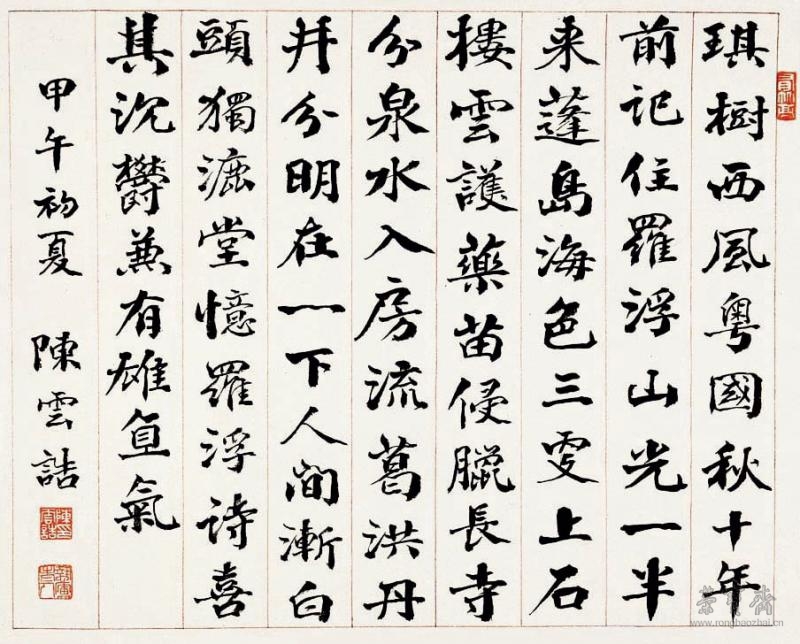 琪樹西風粵國秋十年
前記住羅浮山光一半
來蓬島海色三更上石
樓雲護藥苗侵臘長寺
分泉水入房流葛洪丹
井分明在一下人間漸白
頭獨漉堂憶羅浮詩喜
其沉鬱兼有雄直氣
甲午初夏 陳雲誥
榮寶齋
www.rongbaozhai.cn